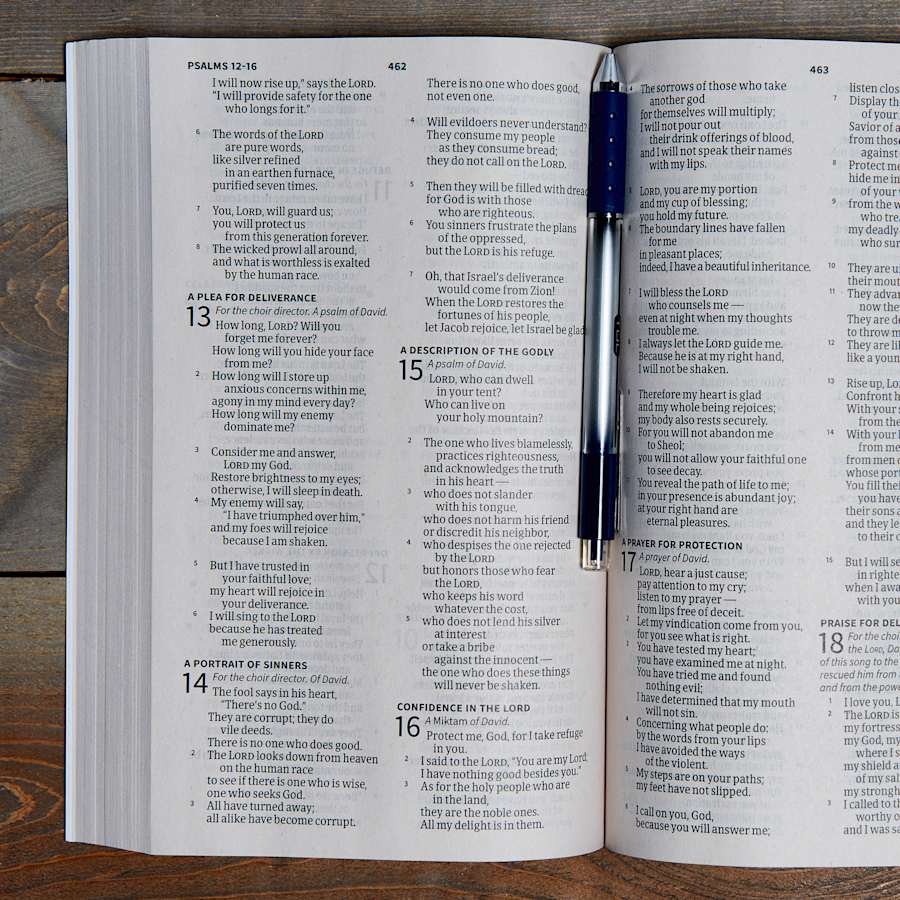 PSALMS 12-16
462
I will now rise up,” says the LORD.
“I will provide safety for the one
who longs for it.”
6 The words of the LORD
are pure words,
like silver refined
in an earthen furnace,
purified seven times.
7 You, LORD, will guard us;
you will protect us
from this generation forever.
8 The wicked prowl all around,
and what is worthless is exalted
by the human race.
A PLEA FOR DELIVERANCE
13 For the choir director. A psalm of David.
How long, LORD? Will you
forget me forever?
How long will you hide your face
from me?
2 How long will I store up
anxious concerns within me,
agony in my mind every day?
How long will my enemy
dominate me?
3 Consider me and answer,
LORD my God.
Restore brightness to my eyes;
otherwise, I will sleep in death.
4 My enemy will say,
“I have triumphed over him,”
and my foes will rejoice
because I am shaken.
5 But I have trusted in
your faithful love;
my heart will rejoice in
your deliverance.
6 I will sing to the LORD
because he has treated
me generously.
A PORTRAIT OF SINNERS
14 For the choir director. Of David.
The fool says in his heart,
“There's no God.”
They are corrupt; they do
vile deeds.
There is no one who does good.
2 The LORD looks down from heaven
on the human race
to see if there is one who is wise,
one who seeks God.
3 All have turned away;
all alike have become corrupt.
There is no one who does good,
not even one.
4 Will evildoers never understand?
They consume my people
as they consume bread;
they do not call on the LORD.
5 Then they will be filled with dread,
for God is with those
who are righteous.
6 You sinners frustrate the plans
of the oppressed,
but the LORD is his refuge.
7 Oh, that Israel's deliverance
would come from Zion!
When the LORD restores the
fortunes of his people,
let Jacob rejoice, let Israel be glad
A DESCRIPTION OF THE GODLY
15 A psalm of David.
LORD, who can dwell
in your tent?
Who can live on
your holy mountain?
2 The one who lives blamelessly,
practices righteousness,
and acknowledges the truth
in his heart —
3 who does not slander
with his tongue,
who does not harm his friend
or discredit his neighbor,
4 who despises the one rejected
by the LORD
but honors those who fear
the LORD,
who keeps his word
whatever the cost,
5 who does not lend his silver
at interest
or take a bribe
against the innocent —
the one who does these things
will never be shaken.
CONFIDENCE IN THE LORD
16 A Miktam of David.
Protect me, God, for I take refuge
in you.
2 I said to the LORD, “You are my Lord;
I have nothing good besides you.”
3 As for the holy people who are
in the land,
they are the noble ones.
All my delight is in them.
463
4 The sorrows of those who take
another god
for themselves will multiply;
I will not pour out
their drink offerings of blood,
and I will not speak their names
with my lips.
LORD, you are my portion
and my cup of blessing;
you hold my future.
The boundary lines have fallen
for me
in pleasant places;
indeed, I have a beautiful inheritance.
I will bless the LORD
who counsels me —
even at night when my thoughts
trouble me.
I always let the LORD guide me.
Because he is at my right hand,
I will not be shaken.
Therefore my heart is glad
and my whole being rejoices;
my body also rests securely.
For you will not abandon me
to Sheol;
you will not allow your faithful one
to see decay.
You reveal the path of life to me;
in your presence is abundant joy;
at your right hand are
eternal pleasures.
A PRAYER FOR PROTECTION
17 A prayer of David.
LORD, hear a just cause;
pay attention to my cry;
listen to my prayer —
from lips free of deceit.
2 Let my vindication come from you,
for you see what is right.
3 You have tested my heart;
you have examined me at night.
You have tried me and found
nothing evil;
I have determined that my mouth
will not sin.
4 Concerning what people do:
by the words from your lips
I have avoided the ways
of the violent.
5 My steps are on your paths;
my feet have not slipped.
6 I call on you, God,
because you will answer me;
listen
7 Display
of your
Savior of
from
against
8 Protect
hide me in
of your
9 from the
who
my deadly
who
10 They are
their
11 They
now
They are
to throw
12 They are
like a
13 Rise up,
Confront
With your
from the
14 With your
from
from men
whose
You fill
you have
their sons
and they
to their
15 But I will
in
when I
with
PRAISE FOR
18 For the
the LORD,
of this song to the
rescued him from
and from the
1 I love you,
2 The LORD is
my fortress
my God,
where I
my shield
of my
my
3 I called to
worthy
and I was